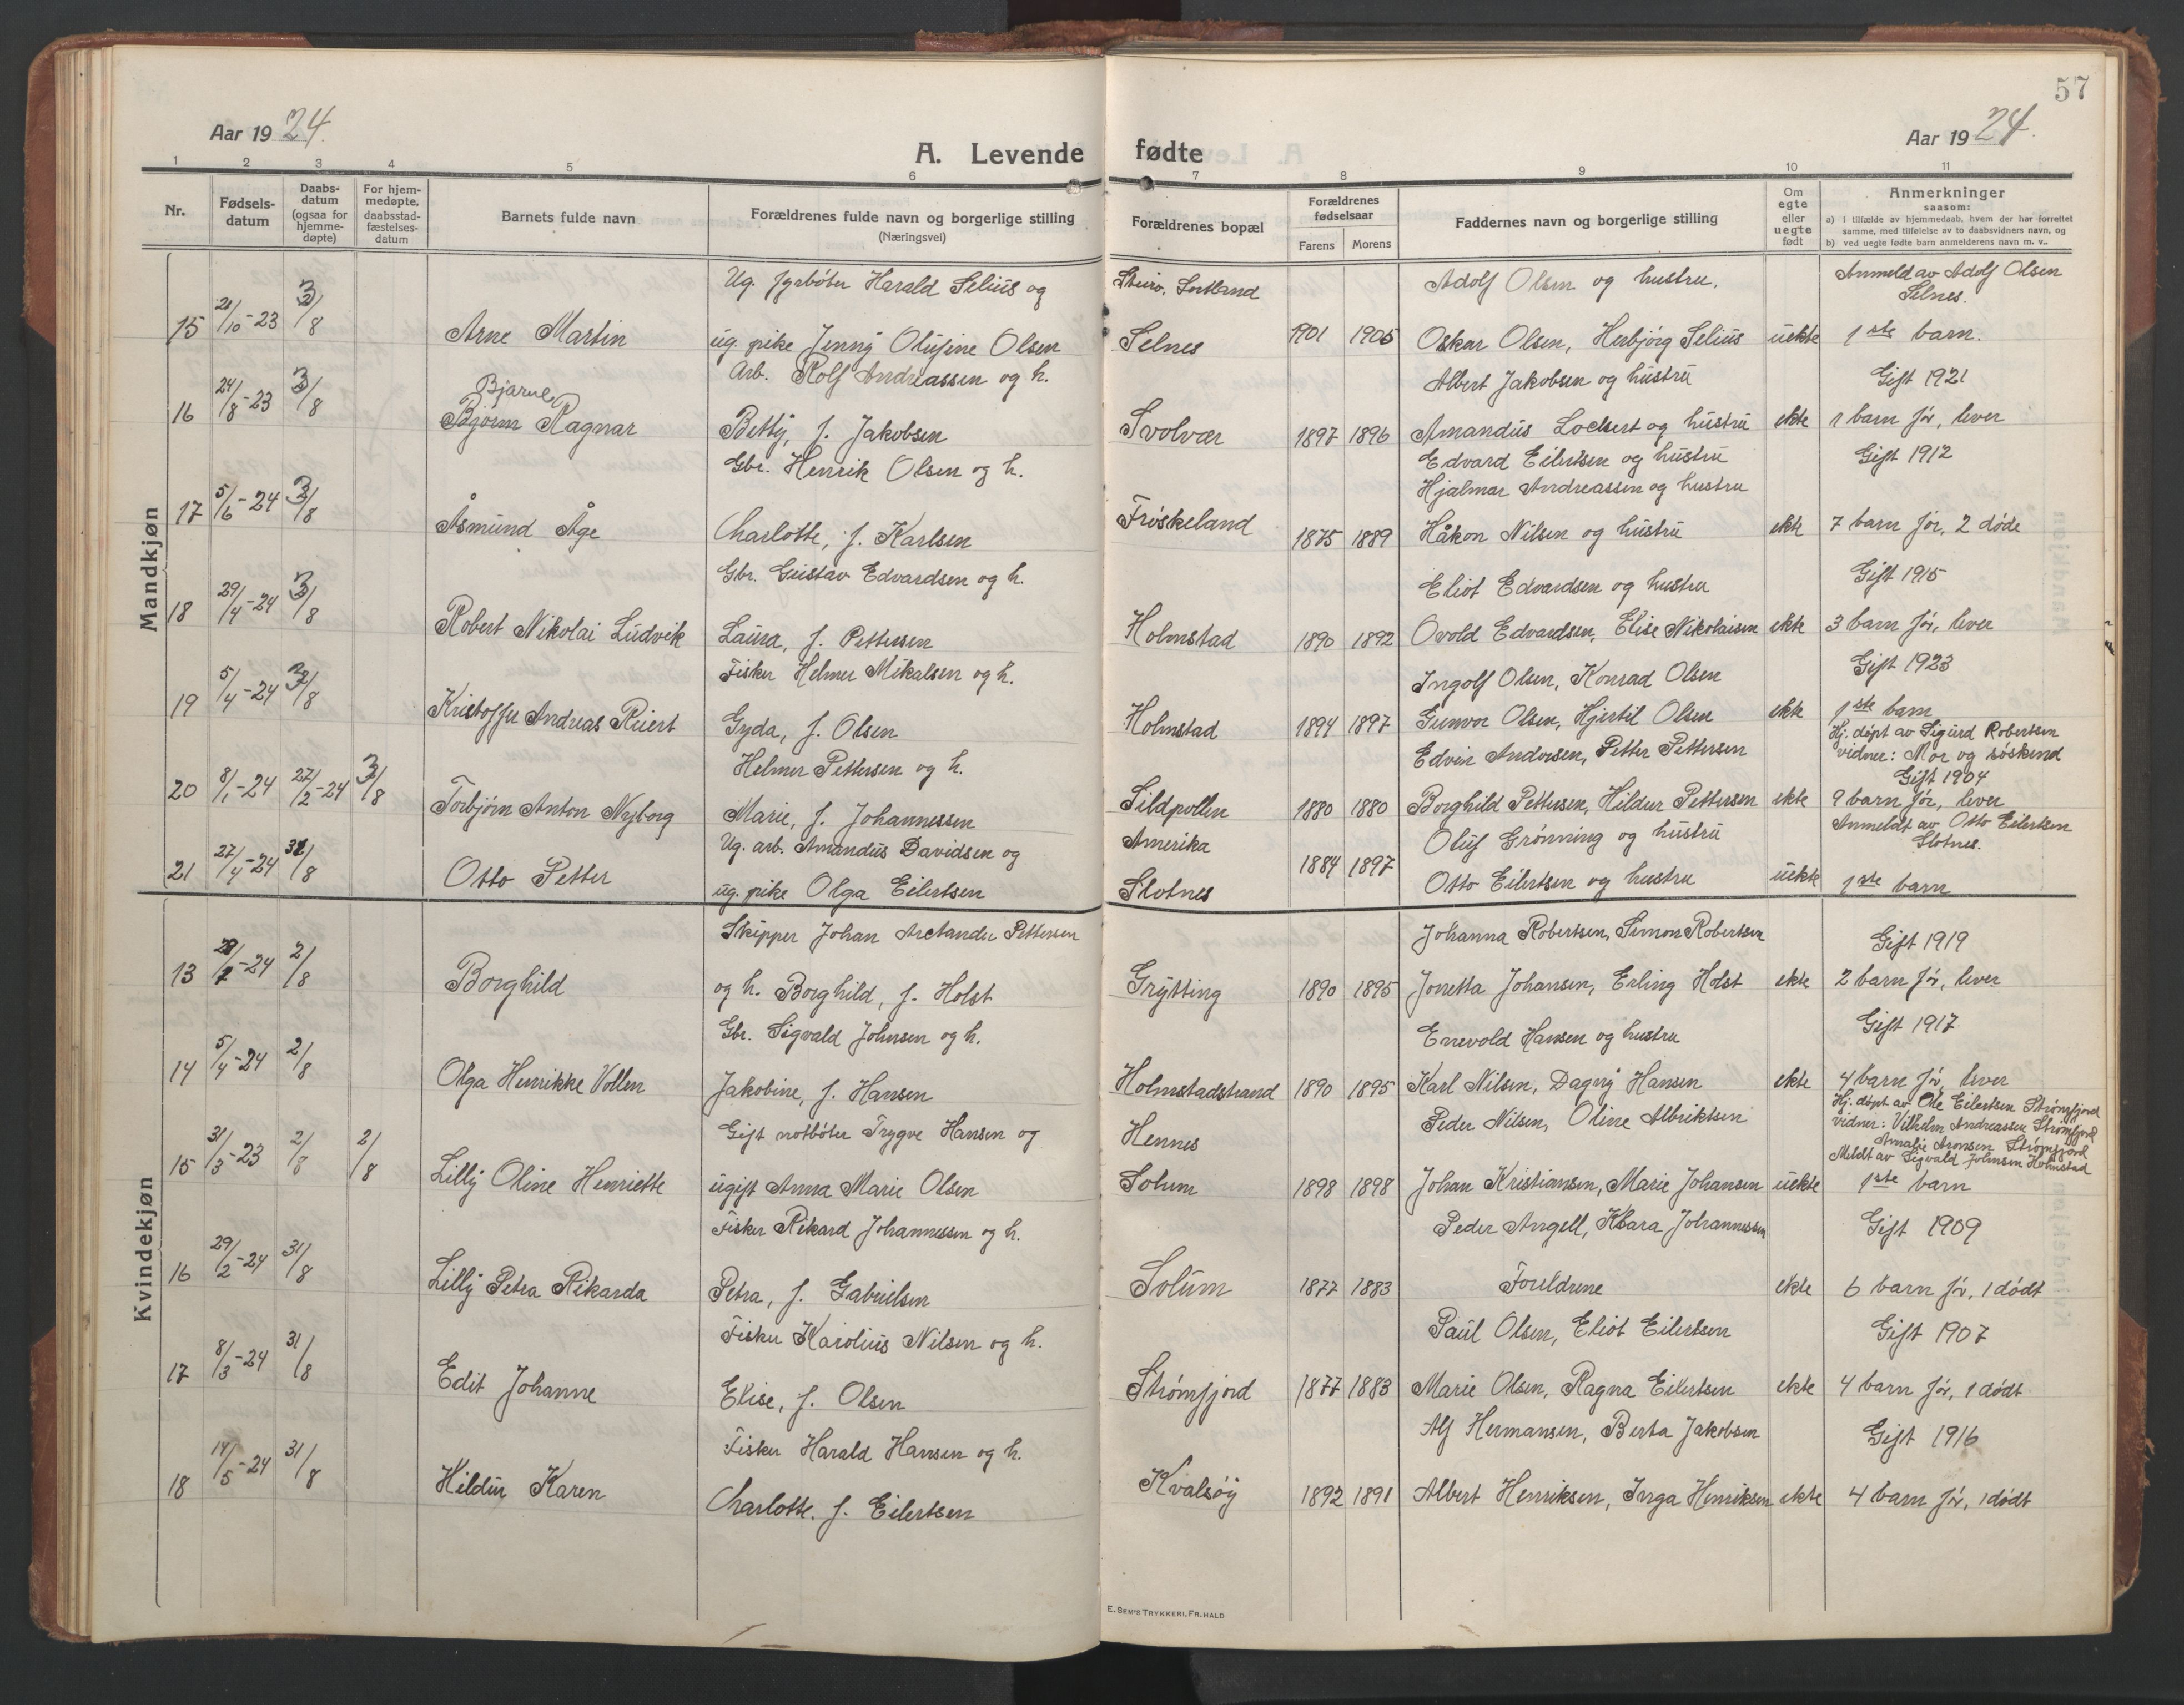 57
Aar 1924.
Aar 1924.
A. Levende fødte
1 2 3 4 5 6 7 8 9 10 11
Nr.
Fødselsdatum
Daabsdatum (ogsaa for hjemmedøpte)
For hjemmedøpte, daabsstadfæstelsesdatum
Barnets fulde navn
Forældrenes fulde navn og borgerlige stilling
(Næringsvei)
Forældrenes bopæl
Forældrenes fødselsaar
Farens Morens
Faddernes navn og borgerlige stilling
Om egte eller uegte født
Anmerkninger
saasom:
a) i tilfælde av hjemmedaab, hvem der har forrettet samme, med tilføielse av to daabsvidners navn, og
b) ved uegte fødte barn anmelderens navn m. v..
Mandkjøn
Ug. fyrbøter Harald Selius og Sortland Adolf Olsen og hustru. Anmeld av Adolf Olsen Selnes.
15 21/10-23 3/8 Arne Martin ug. pike Jenny Olufine Olsen Selnes 1901 1905 Oskar Olsen, Herbjørg Selius uekte 1ste barn.
Arb. Rolf Andreassen og h. Albert Jakobsen og hustru Gift 1921
Bjarne
16 24/8-23 3/8 Bjørn Ragnar Betty, f. Jakobsen Svolvær 1897 1896 Amandus Lockert og hustru ekte 1 barn før, lever
Gbr. Henrik Olsen og h. Edvard Eilertsen og hustru Gift 1912
Hjalmar Andreassen og hustru
17 5/6-24 3/8 Åsmund Åge Charlotte, f. Karlsen Frøskeland 1875 1889 Håkon Nilsen og hustru ekte 7 barn før, 2 døde
Gbr. Gustav Edvardsen og h. Eliot Edvardsen og hustru Gift 1915
18 29/4-24 3/8 Robert Nikolai Ludvik Laura, f. Pettersen Holmstad 1890 1892 Ovold Edvardsen, Elise Nikolaisen ekte 3 barn før, lever
Fisker Helmer Mikalsen og h. Ingolf Olsen, Konrad Olsen Gift 1923
19 5/4-24 3/8 Kristoffer Andreas Riert Gyda, f. Olsen Holmstad 1894 1897 Gunvor Olsen, Hjertil Olsen ekte 1ste barn
Helmer Pettersen og h. Edvin Andorsen, Petter Pettersen Hj. døpt av Sigurd Robertsen
vidner: Mor og søskend
Gift 1904
20 8/1-24 27/2-24 3/8 Torbjørn Anton Nyborg Marie, f. Johannessen Sildpollen 1880 1880 Borghild Pettersen, Hildur Pettersen ekte 9 barn før, lever
Ug. arb. Amandus Davidsen og Amerika Oluf Grønning og hustru Anmeldt av Otto Eilertsen Slotnes.
21 27/4-24 31/8 Otto Petter ug. pike Olga Eilertsen Slotnes 1884 1897 Otto Eilertsen og hustru uekte 1ste barn
Kvindekjøn
Skipper Johan Arctander Pettersen Johanna Robertsen, Simon Robertsen Gift 1919
13 24 2/8 Borghild og h. Borghild, f. Holst Grytting 1890 1895 Jonetta Johansen, Erling Holst ekte 2 barn før, lever
Gbr. Sigvald Johnsen og h. Enevold Hansen og hustru Gift 1917
14 5/4-24 2/8 Olga Henrikke Vollen Jakobine, f. Hansen Holmstadstrand 1890 1895 Karl Nilsen, Dagny Hansen ekte 4 barn før, lever
Gift notbøter Trygve Hansen og Hennes Peder Nilsen, Oline Albriktsen Hj. døpt av Ole Eilertsen Strømfjord
vidner: Vilhelm Andreassen Strømfjord
Amalie Aronsen Strømfjord
Meldt av Sigvald Johnsen Holmstad
15 31/3-23 2/8 2/8 Lilly Oline Henriette ugift Anna Marie Olsen Solum 1898 1898 Johan Kristiansen, Marie Johansen uekte 1ste barn
Fisker Rikard Johannessen og h. Peder Angell, Klara Johannessen Gift 1909
16 29/2-24 31/8 Lilly Petra Rikarda Petra, f. Gabrielsen Solum 1877 1883 Foreldrene ekte 6 barn før, 1 dødt
Fisker Karolius Nilsen og h. Paul Olsen, Eliot Eilertsen Gift 1907
17 8/3-24 31/8 Edit Johanne Elise, f. Olsen Strømfjord 1877 1883 Marie Olsen, Ragna Eilertsen ekte 4 barn før, 1 dødt
Fisker Harald Hansen og h. Alf Hermansen, Berta Jakobsen Gift 1916
18 14/5-24 31/8 Hildur Karen Charlotte. f. Eilertsen Kvalsøy 1892 1891 Albert Henriksen, Inga Henriksen ekte 4 barn før, 1 dødt
E. SEM'S TRYKKERI, FR. HALD